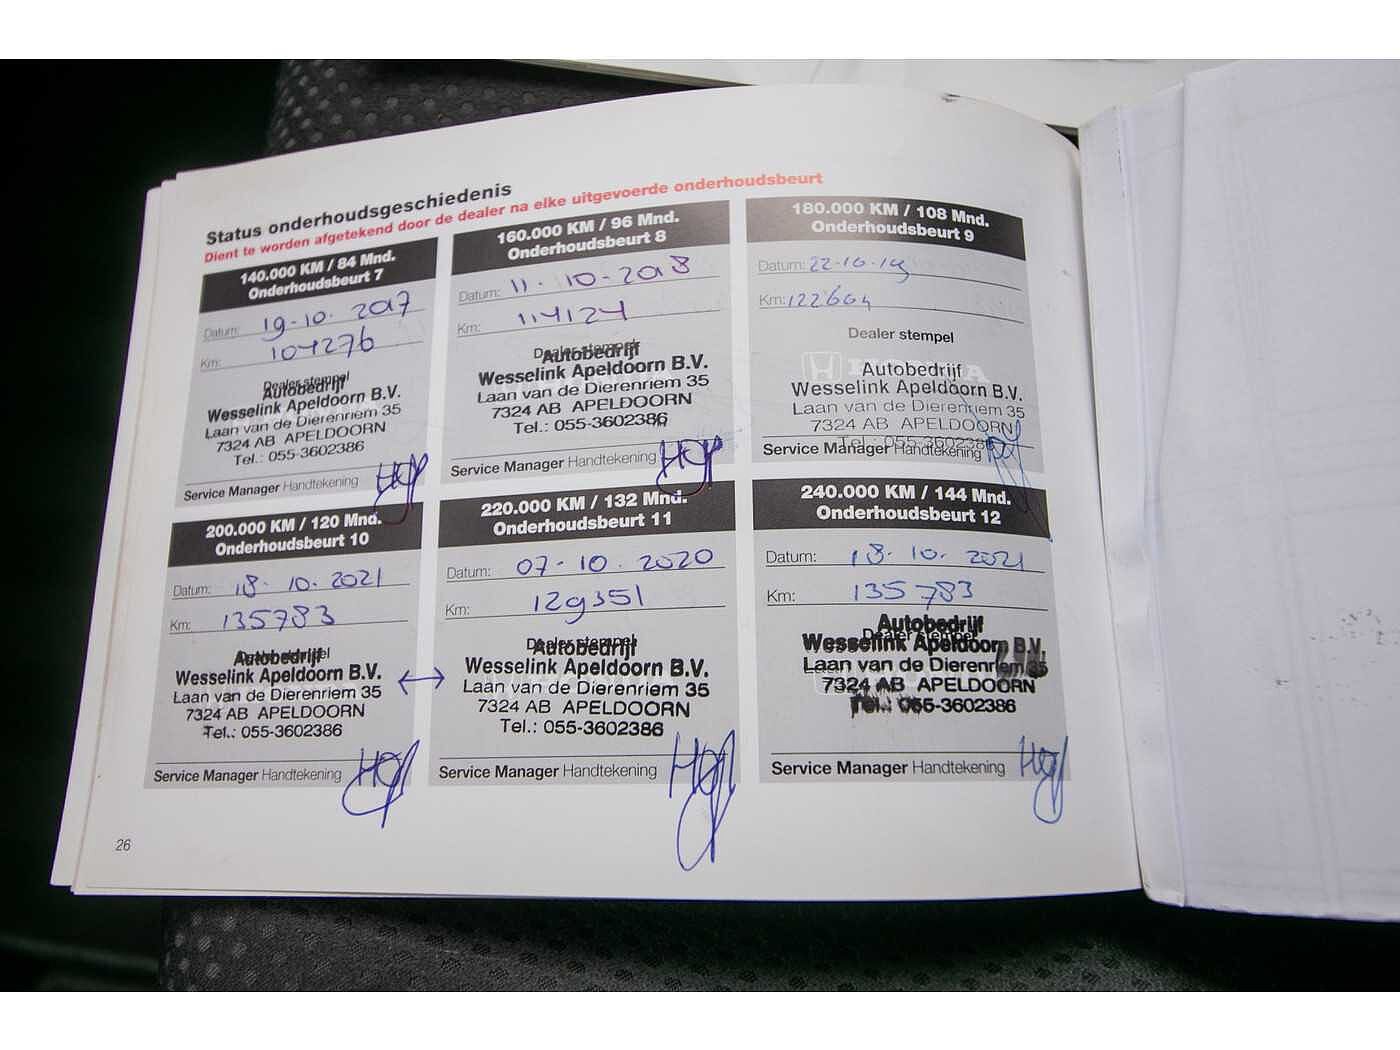 Status onderhoudsgeschiedenis
Dient te worden afgetekend door de dealer na elke uitgevoerde onderhoudsbeurt
140.000 KM / 84 Mnd.
Onderhoudsbeurt 7
Datum: 19-10. 2017
Km: 104276
Dealer stempel
Autobedrijf
Wesselink Apeldoorn B.V.
Laan van de Dierenriem 35
7324 AB APELDOORN
Tel.: 055-3602386
Service Manager Handtekening
160.000 KM / 96 Mnd.
Onderhoudsbeurt 8
Datum: 11-10-2018
Km: 114124
Dealer stempel
Autobedrijf
Wesselink Apeldoorn B.V.
Laan van de Dierenriem 35
7324 AB APELDOORN
Tel.: 055-3602386
Service Manager Handtekening
180.000 KM / 108 Mnd.
Onderhoudsbeurt 9
Datum: 22-10-19
Km: 122604
Dealer stempel
HONDA
Autobedrijf
Wesselink Apeldoorn B.V.
Laan van de Dierenriem 35
7324 AB APELDOORN
Tel.: 055-3602386
Service Manager Handtekening
200.000 KM / 120 Mnd.
Onderhoudsbeurt 10
Datum: 18-10-2021
Km: 135783
Dealer stempel
Autobedrijf
Wesselink Apeldoorn B.V.
Laan van de Dierenriem 35
7324 AB APELDOORN
Tel.: 055-3602386
Service Manager Handtekening
220.000 KM / 132 Mnd.
Onderhoudsbeurt 11
Datum: 07-10.2020
Km: 129351
Dealer stempel
Autobedrijf
Wesselink Apeldoorn B.V.
Laan van de Dierenriem 35
7324 AB APELDOORN
Tel.: 055-3602386
Service Manager Handtekening
240.000 KM / 144 Mnd.
Onderhoudsbeurt 12
Datum: 18-10.2021
Km: 135783
Dealer stempel
Autobedrijf
Wesselink Apeldoorn B.V.
Laan van de Dierenriem 35
7324 AB APELDOORN
Tel.: 055-3602386
Service Manager Handtekening
26